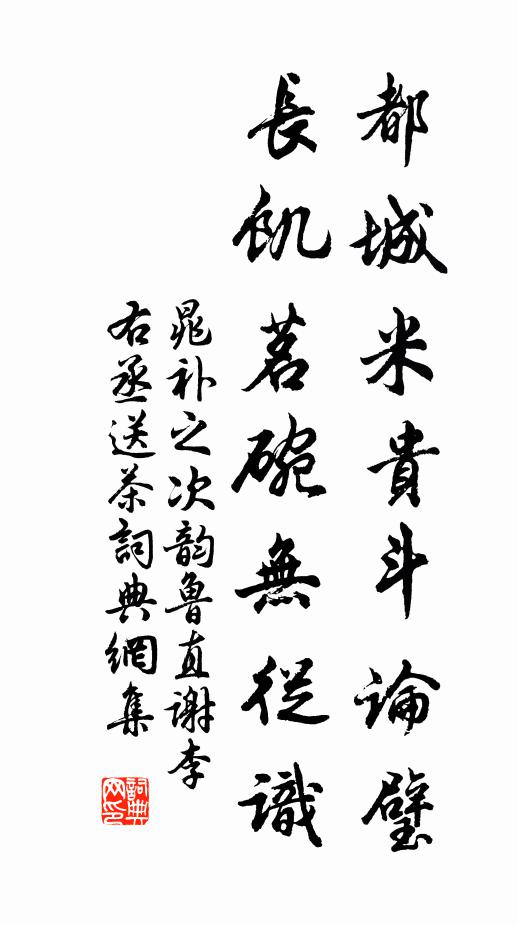 都城米貴斗論璧
長飢茗碗無從識
晁補之次韵魯直謝李
右丞送茶詞典網集
詞典
网印